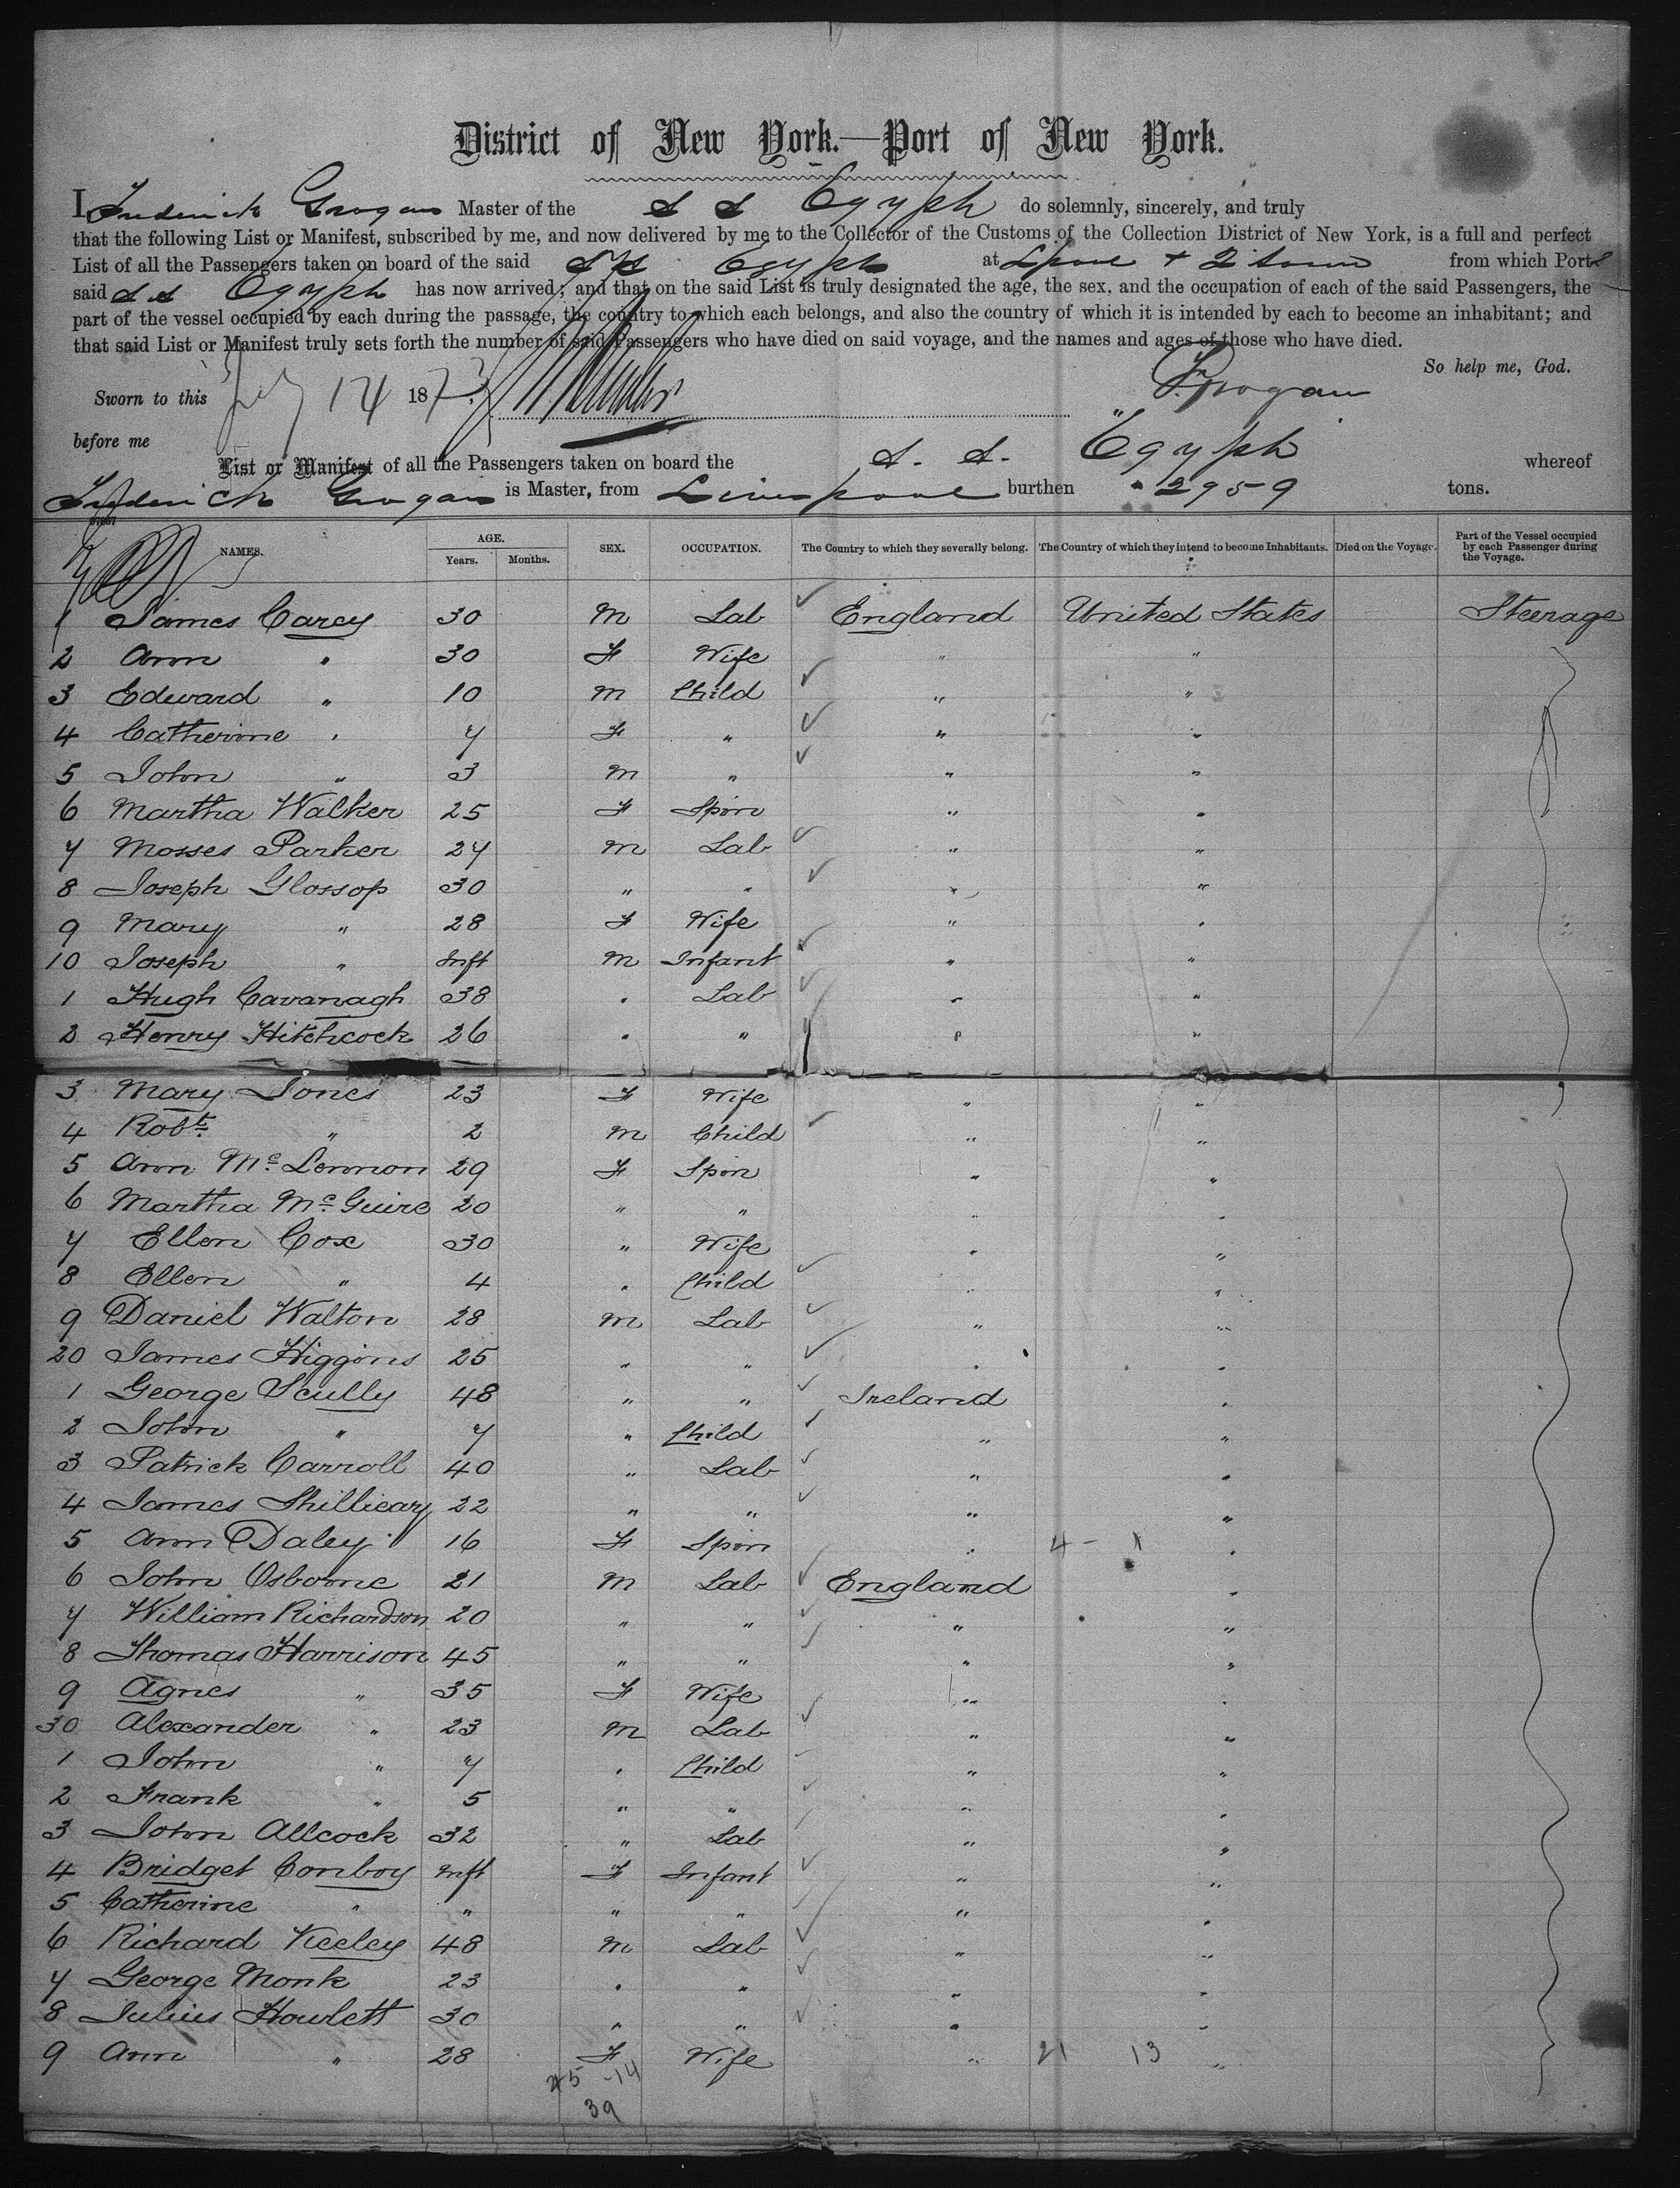 District of New York.—Port of New York.
I Frederick Grogan Master of the S S Egypt do solemnly, sincerely, and truly
that the following List or Manifest, subscribed by me, and now delivered by me to the Collector of the Customs of the Collection District of New York, is a full and perfect
List of all the Passengers taken on board of the said S S Egypt at Lpool + Qtown from which Ports
said S S Egypt has now arrived; and that on the said List is truly designated the age, the sex, and the occupation of each of the said Passengers, the
part of the vessel occupied by each during the passage, the country to which each belongs, and also the country of which it is intended by each to become an inhabitant; and
that said List or Manifest truly sets forth the number of said Passengers who have died on said voyage, and the names and ages of those who have died.
So help me, God.
Sworn to this July 14 1873 F. Grogan
before me
List or Manifest of all the Passengers taken on board the S. S. "Egypt" whereof
Frederick Grogan is Master, from Liverpool burthen 2959 tons.
NAMES. AGE. Years. Months. SEX. OCCUPATION. The Country to which they severally belong. The Country of which they intend to become Inhabitants. Died on the Voyage. Part of the Vessel occupied by each Passenger during the Voyage.
1 James Carey 30 M Lab England United States Steerage
2 Ann " 30 F Wife " "
3 Edward " 10 M Child " "
4 Catherine " 7 F " " "
5 John " 3 M " " "
6 Martha Walker 25 F Spin " "
7 Mosses Parker 27 M Lab " "
8 Joseph Glossop 30 " " " "
9 Mary " 28 F Wife " "
10 Joseph " Inft M Infant " "
1 Hugh Cavanagh 38 " Lab " "
2 Henry Hitchcock 26 " " " "
3 Mary Jones 23 F Wife " "
4 Robt. " 2 M Child " "
5 Ann McLennon 29 F Spin " "
6 Martha McGuire 20 " " " "
7 Ellen Cox 30 " Wife " "
8 Ellen " 4 " Child " "
9 Daniel Walton 28 M Lab " "
20 James Higgins 25 " " " "
1 George Scully 48 " " Ireland "
2 John " 7 " Child " "
3 Patrick Carroll 40 " Lab " "
4 James Shillieary 22 " " " "
5 Ann Daley 16 F Spin " 4 - 1 "
6 John Osborne 21 M Lab England "
7 William Richardson 20 " " " "
8 Thomas Harrison 45 " " " "
9 Agnes " 35 F Wife " "
30 Alexander " 23 M Lab " "
1 John " 7 " Child " "
2 Frank " 5 " " " "
3 John Allcock 32 " Lab " "
4 Bridget Conboy Inft F Infant " "
5 Catherine " " " " " "
6 Richard Keeley 48 M Lab " "
7 George Monk 23 " " " "
8 Julius Howlett 30 " " " "
9 Ann " 28 F Wife " 21 13 "
25 -14
39